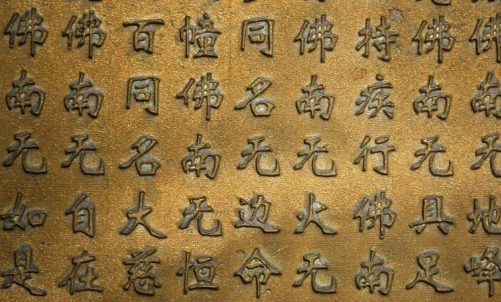 佛南无地峰
佛南无具足
持疾行佛南
佛南无火无
同名无边命
幢佛南无恒
百同名大慈
佛南无自在
佛南无如是